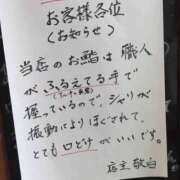 お客様各位
(お知らせ)
当店のお鮨は職人
がふるえてる手で
握っているので、シャリが
振動によりほぐされて、
とても口どけがいいです。
店主 敬白